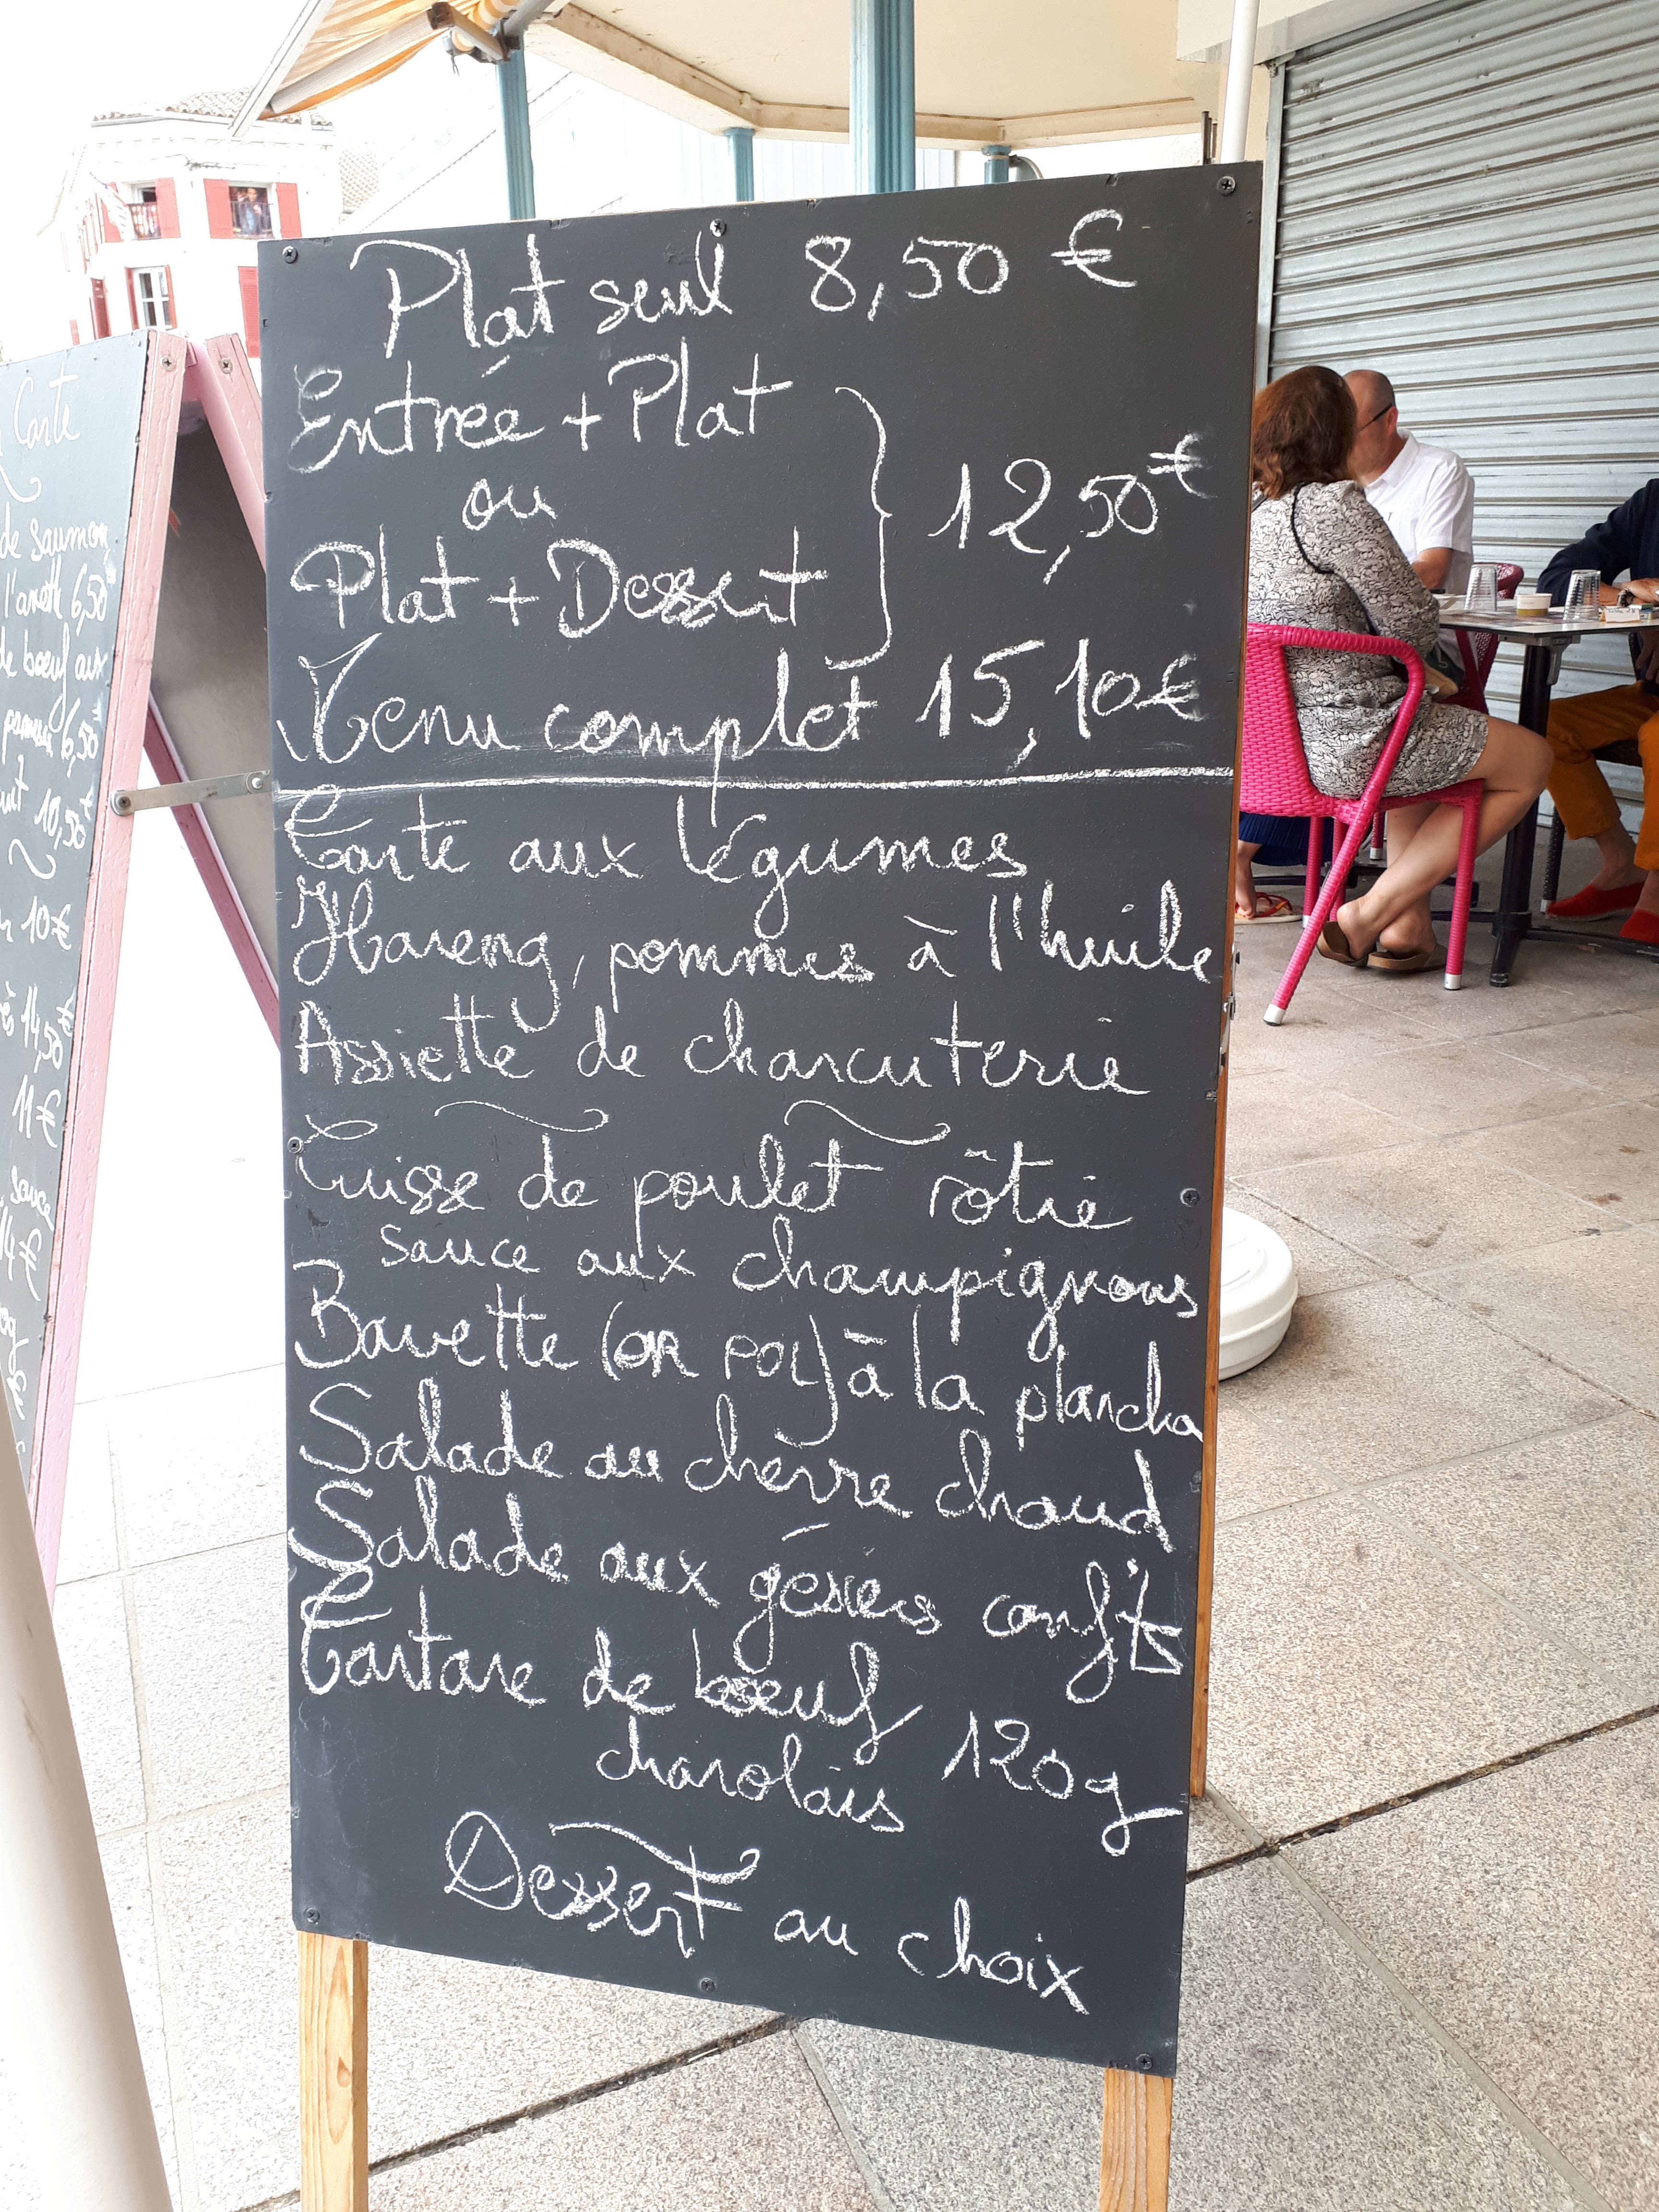 Plat seul 8,50 €
Entrée + Plat
ou
Plat + Dessert
12,50 €
Menu complet 15,10 €
Tarte aux légumes
Hareng, pommes à l'huile
Assiette de charcuterie
Cuisse de poulet rôtie
sauce aux champignons
Bavette (ou POI) à la plancha
Salade au chèvre chaud
Salade aux gésiers confits
Tartare de bœuf
charolais 120g
Dessert au choix
Carte
de saumon
l'aneth 6,50
de bœuf aux
6,50
10,50€
10€
14,50€
11€
sauce
14€